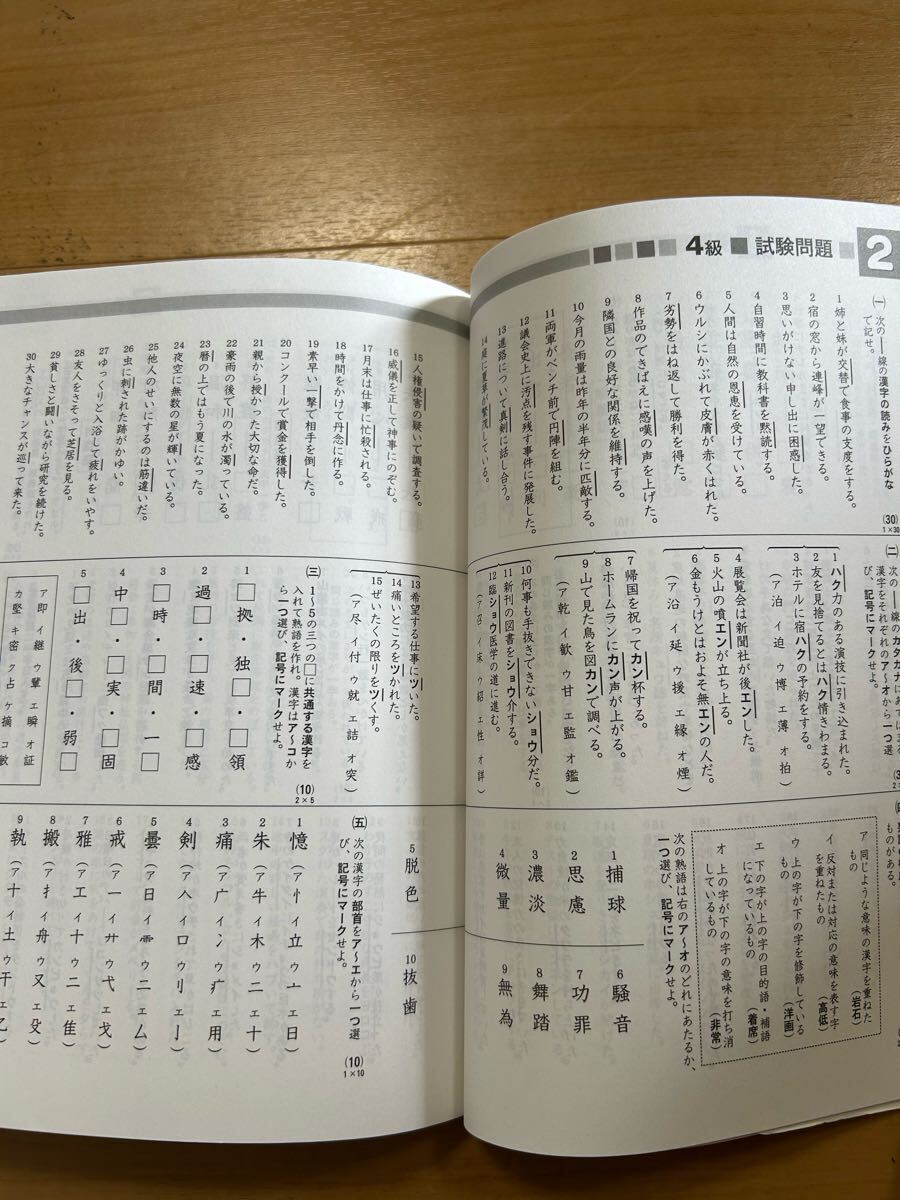 2
4級 ■ 試験問題
(一) 次の――線の漢字の読みをひらがな
で記せ。
(30)
1×30
1 姉と妹が交替で食事の支度をする。
2 宿の窓から連峰が一望できる。
3 思いがけない申し出に困惑した。
4 自習時間に教科書を黙読する。
5 人間は自然の恩恵を受けている。
6 ウルシにかぶれて皮膚が赤くはれた。
7 劣勢をはね返して勝利を得た。
8 作品のできばえに感嘆の声を上げた。
9 隣国との良好な関係を維持する。
10 今月の雨量は昨年の半年分に匹敵する。
11 両軍がベンチ前で円陣を組む。
12 議会史上に汚点を残す事件に発展した。
13 進路について真剣に話し合う。
14 庭に夏草が繁茂している。
15 人権侵害の疑いで調査する。
16 威儀を正して神事にのぞむ。
17 月末は仕事に忙殺される。
18 時間をかけて丹念に作る。
19 素早い一撃で相手を倒した。
20 コンクールで賞金を獲得した。
21 親から授かった大切な命だ。
22 豪雨の後で川の水が濁っている。
23 暦の上ではもう夏になった。
24 夜空に無数の星が輝いている。
25 他人のせいにするのは筋違いだ。
26 虫に刺された跡がかゆい。
27 ゆっくりと入浴して疲れをいやす。
28 友人をさそって芝居を見る。
29 貧しさと闘いながら研究を続けた。
30 大きなチャンスが巡って来た。
(二) 次の――線のカタカナにあてはまる
漢字をそれぞれのア～オから一つ選
び、記号にマークせよ。
1 ハク力のある演技に引き込まれた。
2 友を見捨てるとはハク情きわまる。
3 ホテルに宿ハクの予約をする。
(ア 泊 イ 迫 ウ 博 エ 薄 オ 拍)
4 展覧会は新聞社が後エンした。
5 火山の噴エンが立ち上る。
6 金もうけとはおよそ無エンの人だ。
(ア 沿 イ 延 ウ 援 エ 縁 オ 煙)
7 帰国を祝ってカン杯する。
8 ホームランにカン声が上がる。
9 山で見た鳥を図カンで調べる。
(ア 乾 イ 歓 ウ 甘 エ 監 オ 鑑)
10 何事も手抜きできないショウ分だ。
11 新刊の図書をショウ介する。
12 臨ショウ医学の道に進む。
(ア 召 イ 床 ウ 紹 エ 性 オ 詳)
13 希望する仕事にツいた。
14 痛いところをツかれた。
15 ぜいたくの限りをツくす。
(ア 尽 イ 付 ウ 就 エ 詰 オ 突)
(三) 1～5の三つの□に共通する漢字を
入れて熟語を作れ。漢字はア～コか
ら一つ選び、記号にマークせよ。
(10)
2×5
1 □拠・独□・□領
2 過□・□速・□感
3 □時・□間・一□
4 中□・□実・□固
5 □出・後□・弱□
ア 即 イ 継 ウ 輩 エ 瞬 オ 証
カ 堅 キ 密 ク 占 ケ 摘 コ 敏
ものがある。
ア 同じような意味の漢字を重ねた
もの (岩石)
イ 反対または対応の意味を表す字
を重ねたもの (高低)
ウ 上の字が下の字を修飾している
もの (洋画)
エ 下の字が上の字の目的語・補語
になっているもの (着席)
オ 上の字が下の字の意味を打ち消
しているもの (非常)
次の熟語は右のア～オのどれにあたるか、
一つ選び、記号にマークせよ。
1 捕球
2 思慮
3 濃淡
4 微量
5 脱色
6 騒音
7 功罪
8 舞踏
9 無為
10 抜歯
(五) 次の漢字の部首をア～エから一つ選
び、記号にマークせよ。
(10)
1×10
1 憶 (ア 忄 イ 立 ウ 亠 エ 日
2 朱 (ア 牛 イ 木 ウ 二 エ 十
3 痛 (ア 广 イ 冫 ウ 疒 エ 用
4 剣 (ア 人 イ 口 ウ 刂 エ 亅
5 曇 (ア 日 イ 雨 ウ 二 エ 厶
6 戒 (ア 一 イ 廾 ウ 弋 エ 戈
7 雅 (ア 工 イ 十 ウ 二 エ 隹
8 搬 (ア 扌 イ 舟 ウ 又 エ 殳
9 執 (ア 十 イ 土 ウ 干 エ 乙